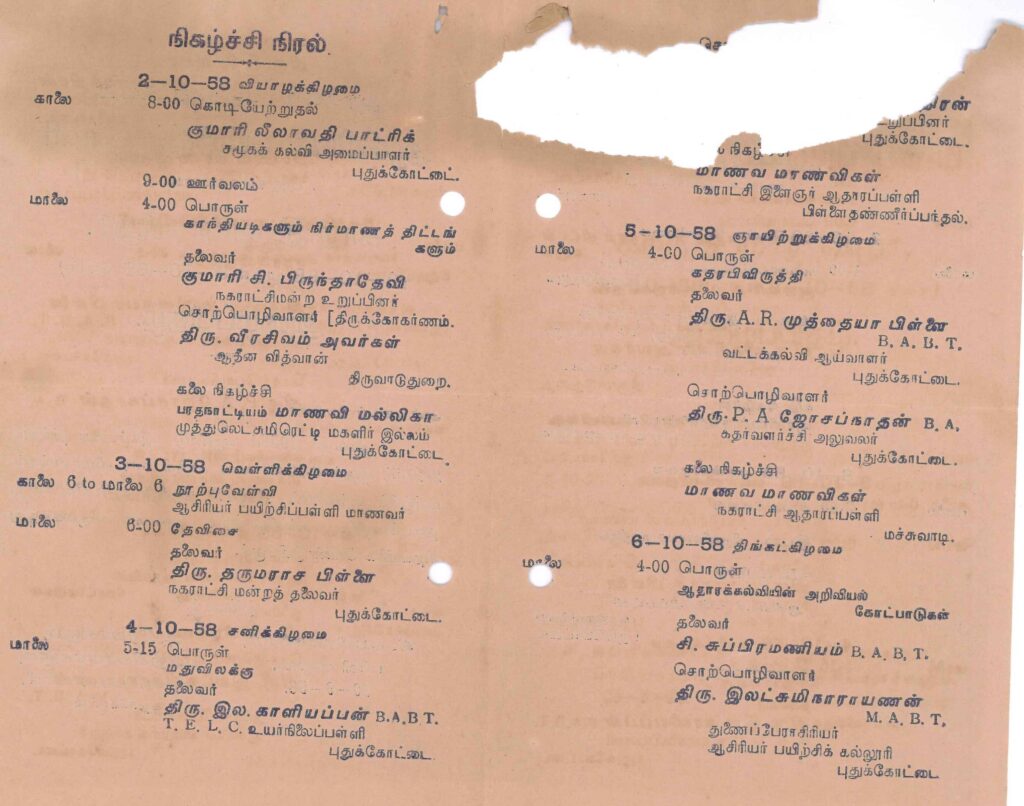 நிகழ்ச்சி நிரல்
2—10—58 வியாழக்கிழமை
காலை 8-00 கொடியேற்றுதல்
குமாரி லீலாவதி பாட்ரிக்
சமூகக் கல்வி அமைப்பாளர்
புதுக்கோட்டை.
9-00 ஊர்வலம்
மாலை 4-00 பொருள்
காந்தியடிகளும் நிர்மாணத் திட்டங்
களும்
தலைவர்
குமாரி சி. பிருந்தாதேவி
நகராட்சிமன்ற உறுப்பினர்
சொற்பொழிவாளர் [திருக்கோகர்ணம்.
திரு. வீரசிவம் அவர்கள்
ஆதீன வித்வான்
திருவாடுதுறை.
கலை நிகழ்ச்சி
பரதநாட்டியம் மாணவி மல்லிகா
முத்துலெட்சுமிரெட்டி மகளிர் இல்லம்
புதுக்கோட்டை.
3—10—58 வெள்ளிக்கிழமை
காலை 6 to மாலை 6 நூற்புவேள்வி
ஆசிரியர் பயிற்சிப்பள்ளி மாணவர்
மாலை 6-00 தேவிசை
தலைவர்
திரு. தருமராச பிள்ளை
நகராட்சி மன்றத் தலைவர்
புதுக்கோட்டை.
4—10—58 சனிக்கிழமை
மாலை 5-15 பொருள்
மதுவிலக்கு
தலைவர்
திரு. இல. காளியப்பன் B.A.B T.
T. E. L. C. உயர்நிலைப்பள்ளி
புதுக்கோட்டை.
புதுக்கோட்டை.
நிகழ்ச்சி
மாணவ மாணவிகள்
நகராட்சி இளைஞர் ஆதாரப்பள்ளி
பிள்ளைதண்ணீர்ப்பந்தல்.
5—10—58 ஞாயிற்றுக்கிழமை
மாலை 4-00 பொருள்
கதரபிவிருத்தி
தலைவர்
திரு. A.R. முத்தையா பிள்ளை
B. A. B. T.
வட்டக்கல்வி ஆய்வாளர்
புதுக்கோட்டை.
சொற்பொழிவாளர்
திரு. P. A ஜோசப்நாதன் B. A.
கதர்வளர்ச்சி அலுவலர்
புதுக்கோட்டை.
கலை நிகழ்ச்சி
மாணவ மாணவிகள்
நகராட்சி ஆதாரப்பள்ளி
மச்சுவாடி.
6—10—58 திங்கட்கிழமை
மாலை 4-00 பொருள்
ஆதாரக்கல்வியின் அறிவியல்
கோட்பாடுகள்
தலைவர்
சி. சுப்பிரமணியம் B. A. B. T.
சொற்பொழிவாளர்
திரு. இலட்சுமிநாராயணன்
M. A. B. T.
துணைப்பேராசிரியர்
ஆசிரியர் பயிற்சிக் கல்லூரி
புதுக்கோட்டை